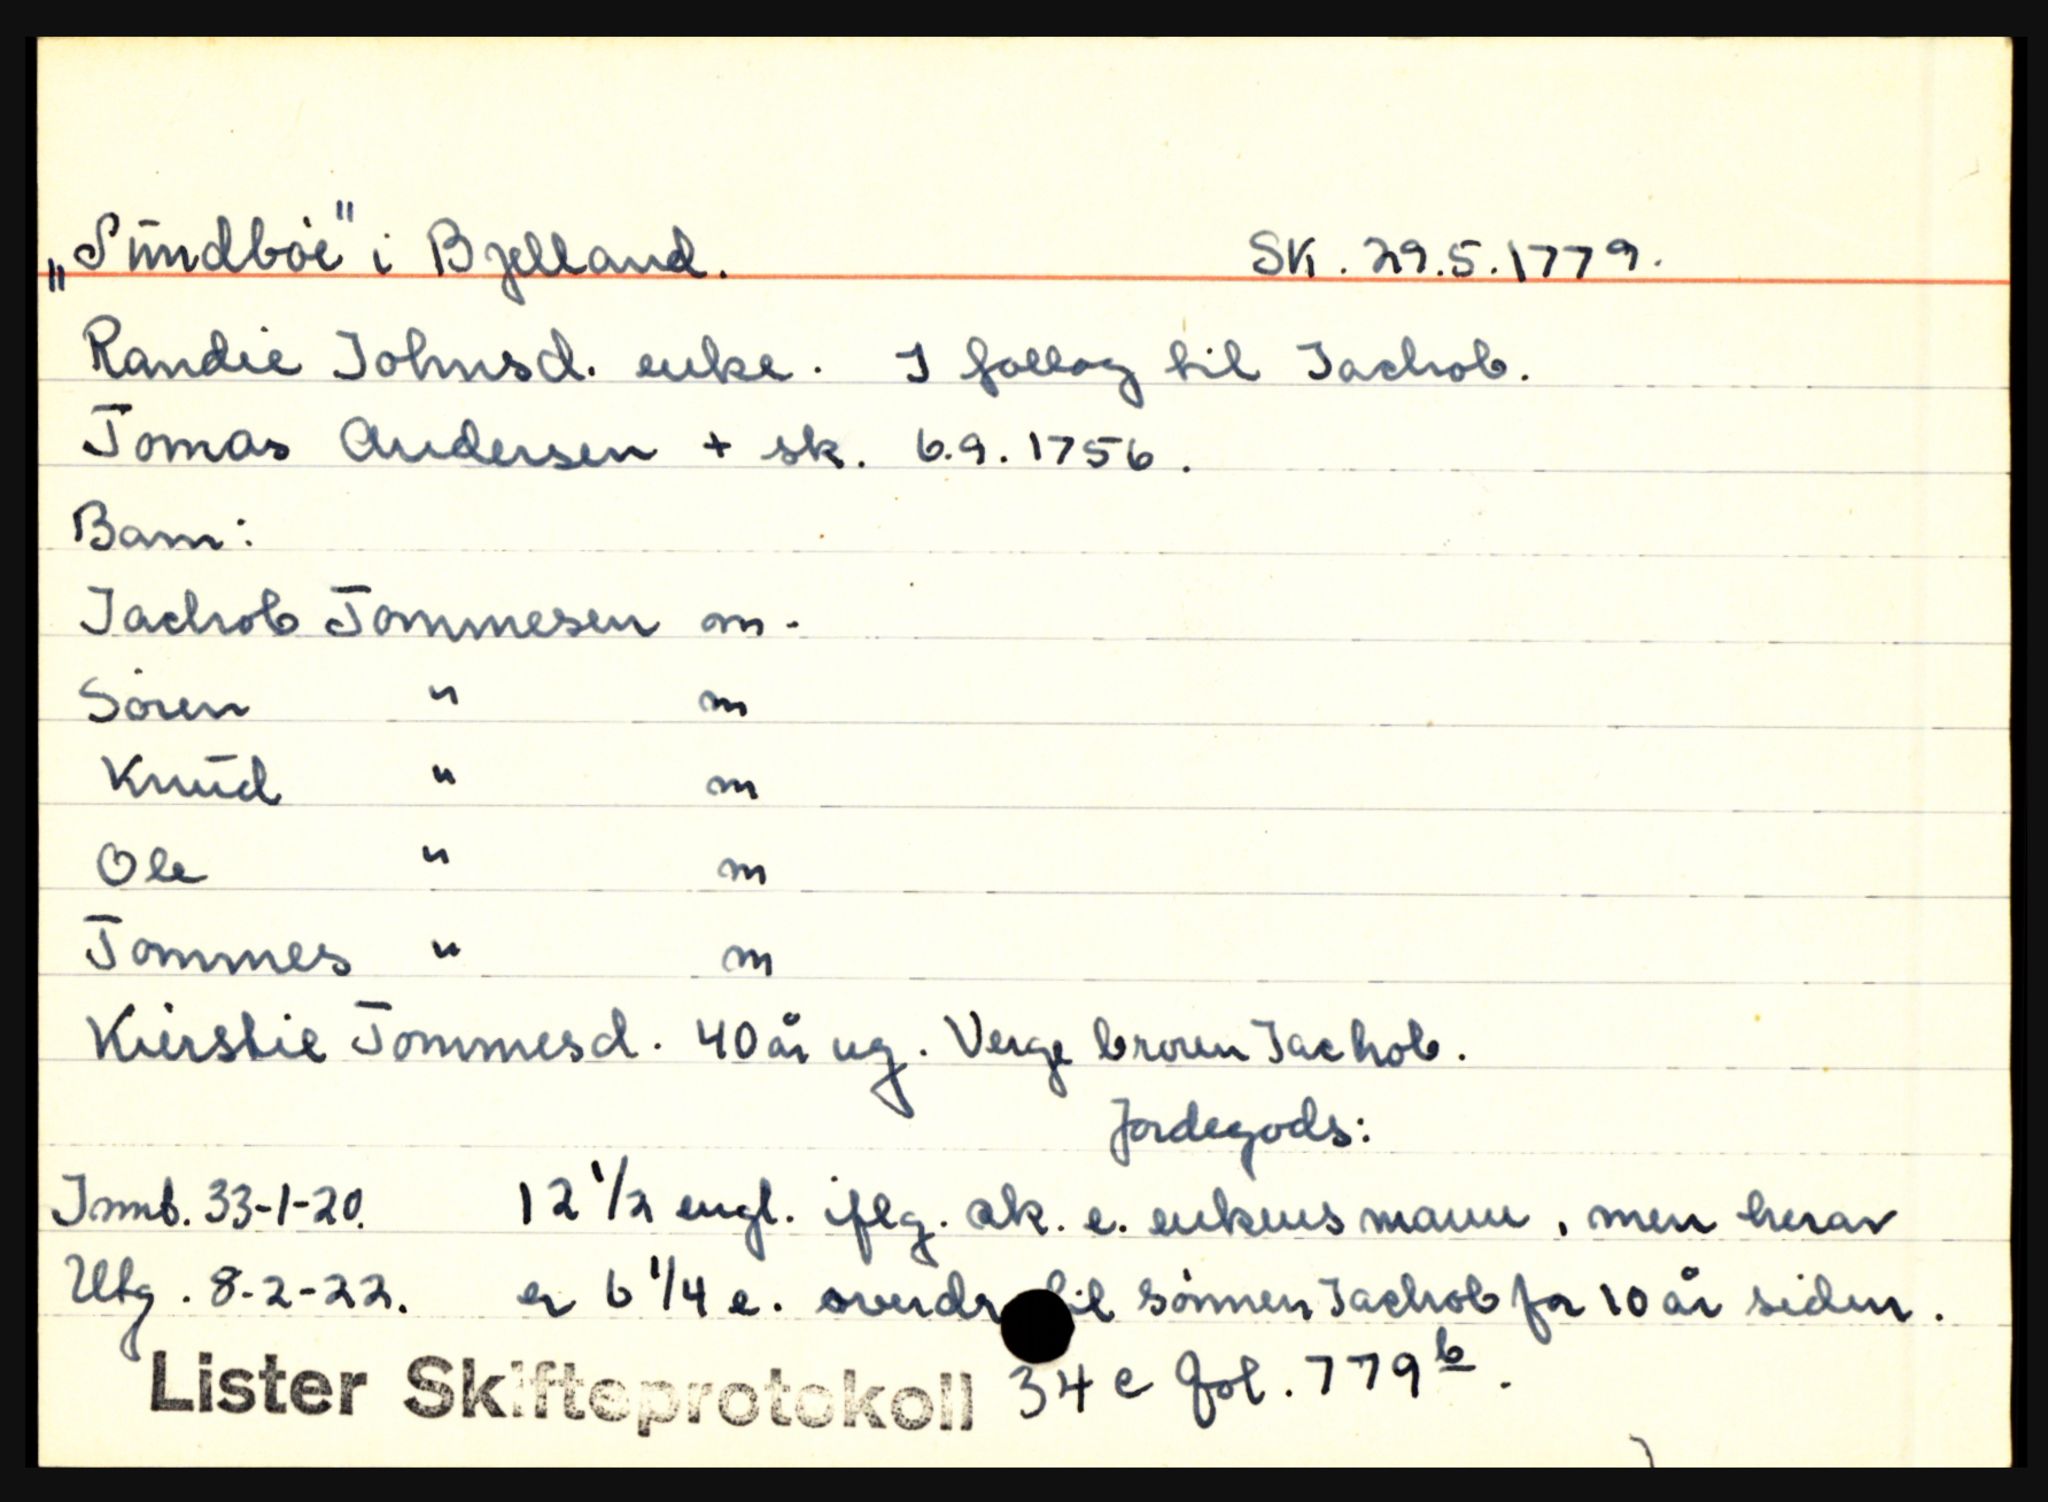 „Sundbøe" i Bjelland. SK. 29.5.1779.
Randie Johnsd. enke. I follog til Jachob.
Tomas Andersen + sk. 6.9.1756.
Barn:
Jachob Tommesen m.
Sören " m
Knud " m
Ole " m
Tommes " m
Kierstie Tommesd. 40 år ug. Verge broren Jachob.
Jordegods:
Innb. 33-1-20. 12 1/2 engl. iflg. sk. e. enkens mann, men herav
Utg. 8-2-22. er 6 1/4 e. overdr til sönnen Jachob for 10 år siden.
Lister Skifteprotokoll 34 c fol. 779 b.